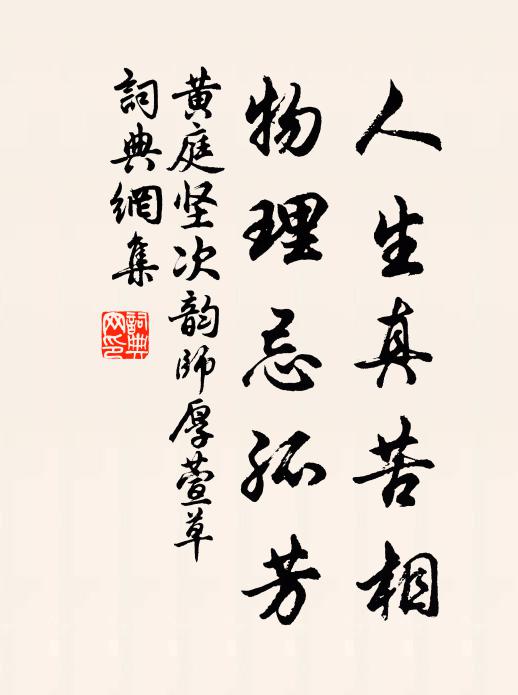 人生真苦相
物理忌孤芳
黄庭坚次韵師厚萱草
詞典網集
詞典網印